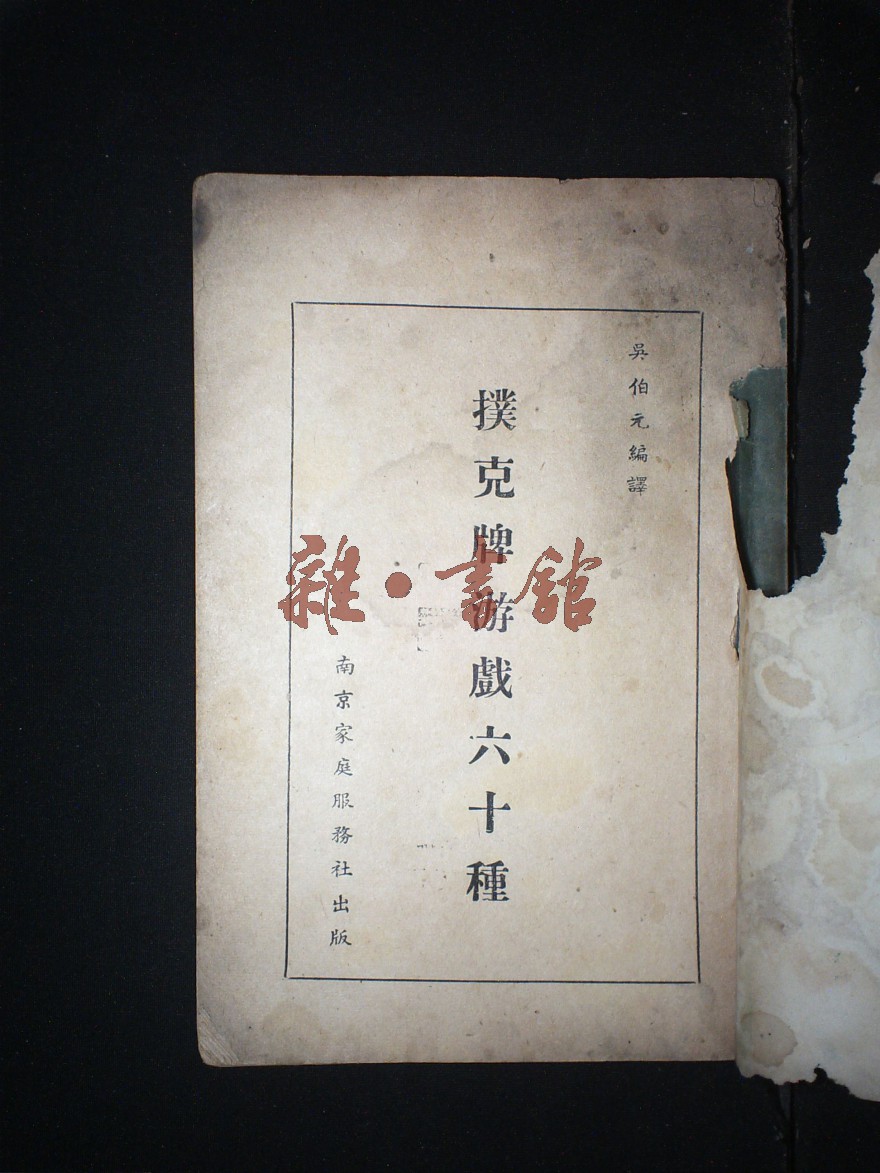 吳伯元編譯
撲克牌游戲六十種
南京家庭服務社出版
雜·書館